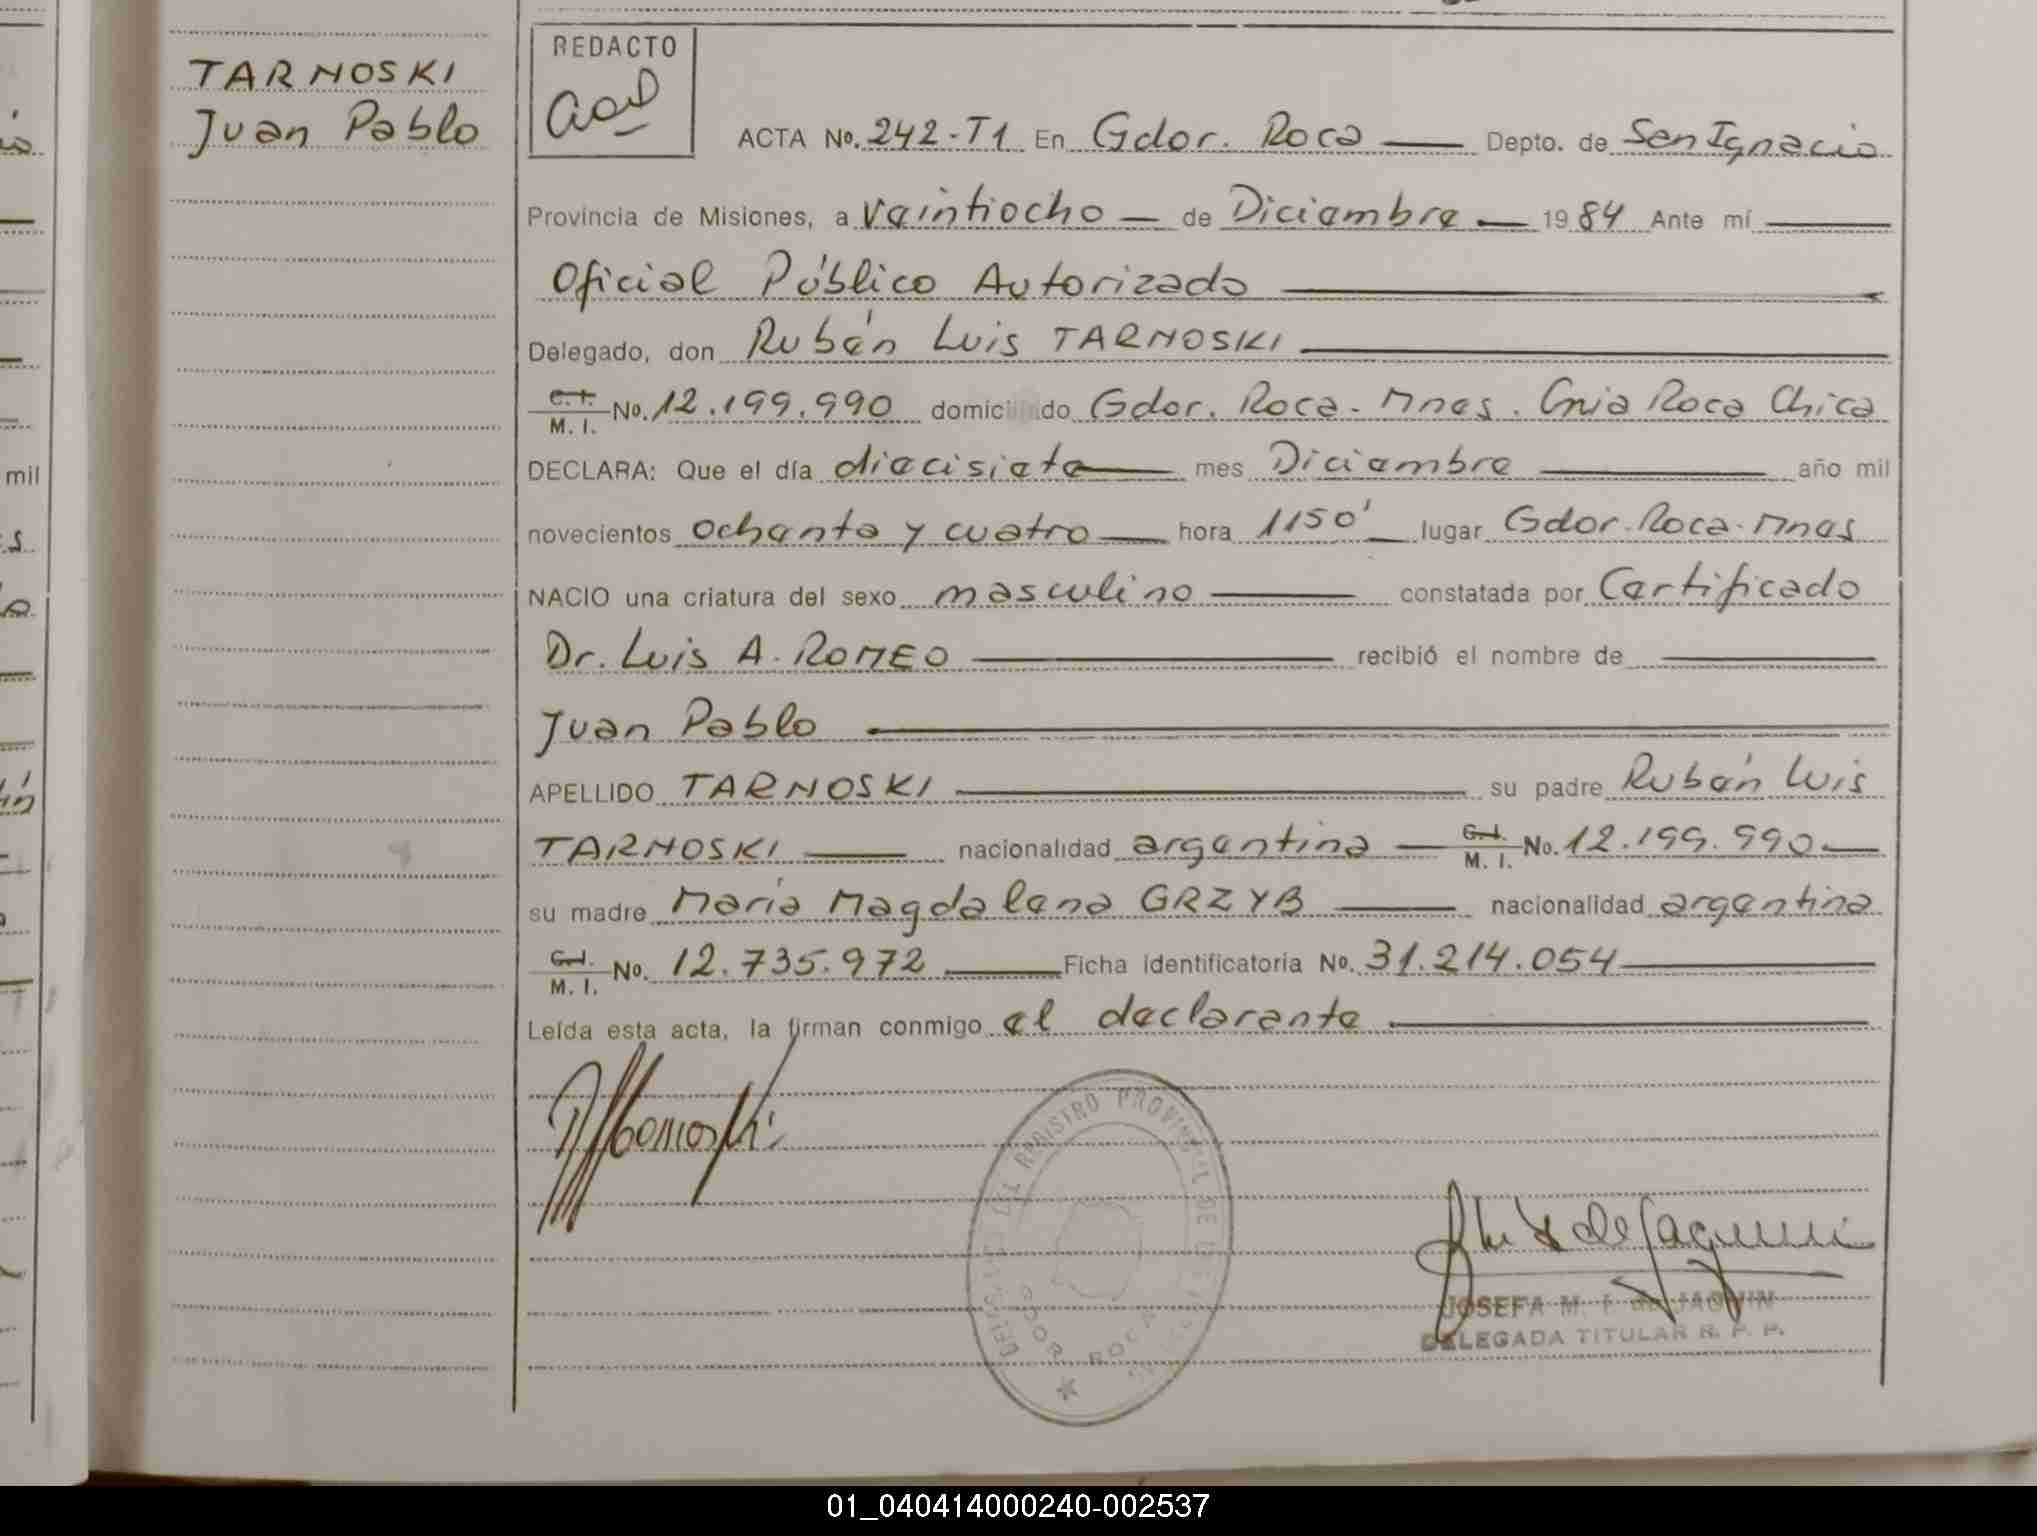 TARNOSKI
Juan Pablo
REDACTO
ACTA No. 242-T1 En Gdor. Roca Depto. de San Ignacio
Provincia de Misiones, a veintiocho de Diciembre 1984 Ante mí
Oficial Público Autorizado
Delegado, don Rubén Luis TARNOSKI
C.I. M. I. No. 12.199.990 domiciliado Gdor. Roca - Mnes. Cnia Roca Chica
DECLARA: Que el día diecisiete mes Diciembre año mil
novecientos ochenta y cuatro hora 1150' lugar Gdor. Roca - Mnes
NACIO una criatura del sexo masculino constatada por Certificado
Dr. Luis A. ROMEO recibió el nombre de
Juan Pablo
APELLIDO TARNOSKI su padre Rubén Luis
TARNOSKI nacionalidad argentina C.I. M. I. No. 12.199.990
su madre María Magdalena GRZYB nacionalidad argentina
C.I. M. I. No. 12.735.972 Ficha identificatoria No. 31.214.054
Leída esta acta, la firman conmigo el declarante
REGISTRO PROVINCIAL DE
GDOR ROCA
JOSEFA M. de JAQUIN
DELEGADA TITULAR R. P. P.
mil
01_040414000240-002537